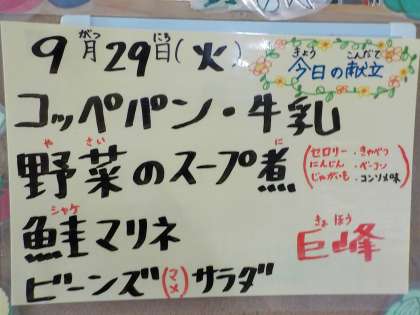 9月29日(火)
がつ にち
きょう こんだて
今日の献立
コッペパン・牛乳
や さい に
野菜のスープ煮
(セロリー・きゃべつ
にんじん・ベーコン
じゃがいも・コンソメ味)
シャケ
鮭マリネ
きょ ほう
巨峰
ビーンズ(マメ)サラダ